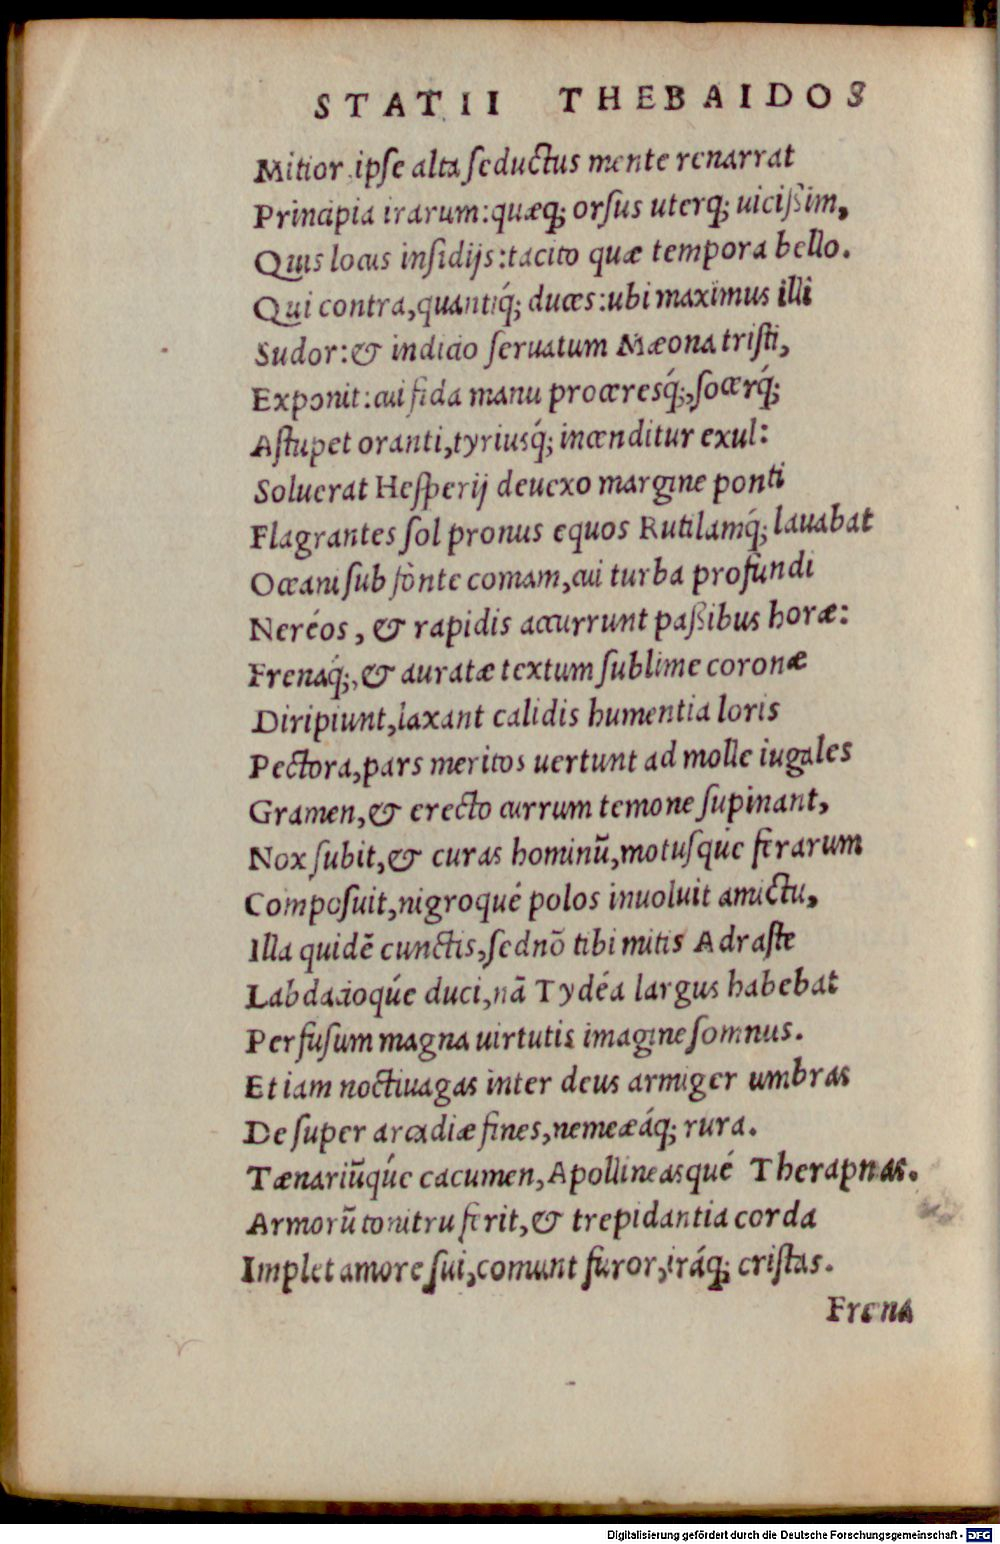 STATII THEBAIDOS
Mitior ipſe alta ſeductus mente renarrat
Principia irarum: quæq; orſus uterq; uiciſsim,
Quis locus inſidijs: tacito quæ tempora bello.
Qui contra, quantiq́; duces: ubi maximus illi
Sudor: & indicio ſeruatum Mæona triſti,
Exponit: cui fida manu proceresq́;, ſocerq́;
Aſtupet oranti, tyriusq́; incenditur exul:
Soluerat Heſperij deuexo margine ponti
Flagrantes ſol pronus equos Rutilamq́; lauabat
Oceani ſub fonte comam, cui turba profundi
Neréos, & rapidis accurrunt paßibus horæ:
Frenaq́;, & auratæ textum ſublime coronæ
Diripiunt, laxant calidis humentia loris
Pectora, pars meritos uertunt ad molle iugales
Gramen, & erecto currum temone ſupinant,
Nox ſubit, & curas hominū, motuſque ferarum
Compoſuit, nigroqué polos inuoluit amictu,
Illa quidē cunctis, ſed nō tibi mitis Adraſte
Labdacioq́ue duci, nā Tydéa largus habebat
Perfuſum magna uirtutis imagine ſomnus.
Et iam noctiuagas inter deus armiger umbras
Deſuper arcadiæ fines, nemeæáq; rura.
Tænariūq́ue cacumen, Apollineasqué Therapnas.
Armorū tonitru ferit, & trepidantia corda
Implet amore ſui, comunt furor, iráq; criſtas.
Frena
Digitalisierung gefördert durch die Deutsche Forschungsgemeinschaft - DFG